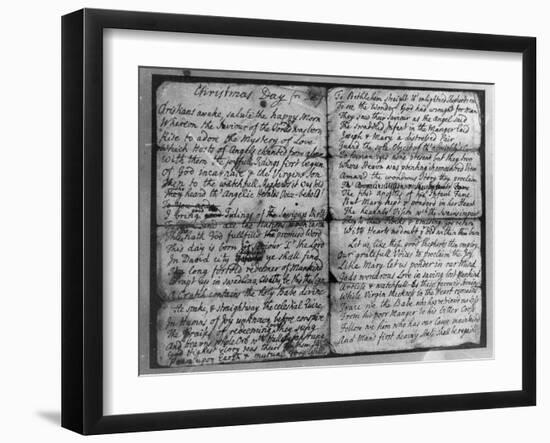 Christmas Day for
Christians awake, salute the happy Morn
Whereon the Saviour of the World was born
Rise to adore the Mystery of Love
Which Hosts of Angels chanted from above
With them the joyfull Tidings first begun
of God incarnate & the Virgins Son
Then to the watchfull Shepherds it was
Who heard th' Angelic Herald's Voice - behold
I bring good Tidings of the Saviours Birth
To you and all the Nations upon Earth
This day hath God fulfill'd the promis'd Word
This day is born a Saviour X the Lord
In David's city ye shall find
The long foretold redeemer of Mankind
Wrapt up in Swadling Cloaths
A Cratch contains the Holy Babe divine
He spake, & straightway the celestial Quire
In Hymns of joy unknown before conspire
The Praises of redeeming Love they sung
And Heavns whole Orb wth Hallelujahs rung
God's Highest Glory was their Anthem still
Peace upon Earth & mutual Good Will
To Bethlehem straight th' enlightned Shepherds ran
To see the Wonder God had wrought for Man
They saw their Saviour as the Angel said
The Swaddled Infant in the Manger laid
Joseph & Mary a distressed Pair
Guard the sole Object of th' Almighty's
To human eyes none present but they two
Where Heavn was
Amaz'd the wondrous Story they proclaim
The first Apostles of his Infant Fame
But Mary kept & ponder'd in her Heart
The Heavnly Vision wch the Swains impart
They to their Flocks & praising God return
With Hearts no doubt that did within them burn
Let us, like these good Shepherds then employ
Our gratefull Voices to proclaim the Joy
Like Mary let us ponder in our Mind
Gods wondrous Love in saving lost Mankind
Artless & watchfull as these
While Virgin Meekness in the Heart
Trace we the Babe who has
From his poor Manger to his bitter Cross
Follow we him who has our Cause maintain'd
And Man's first heavnly State shall be regain'd